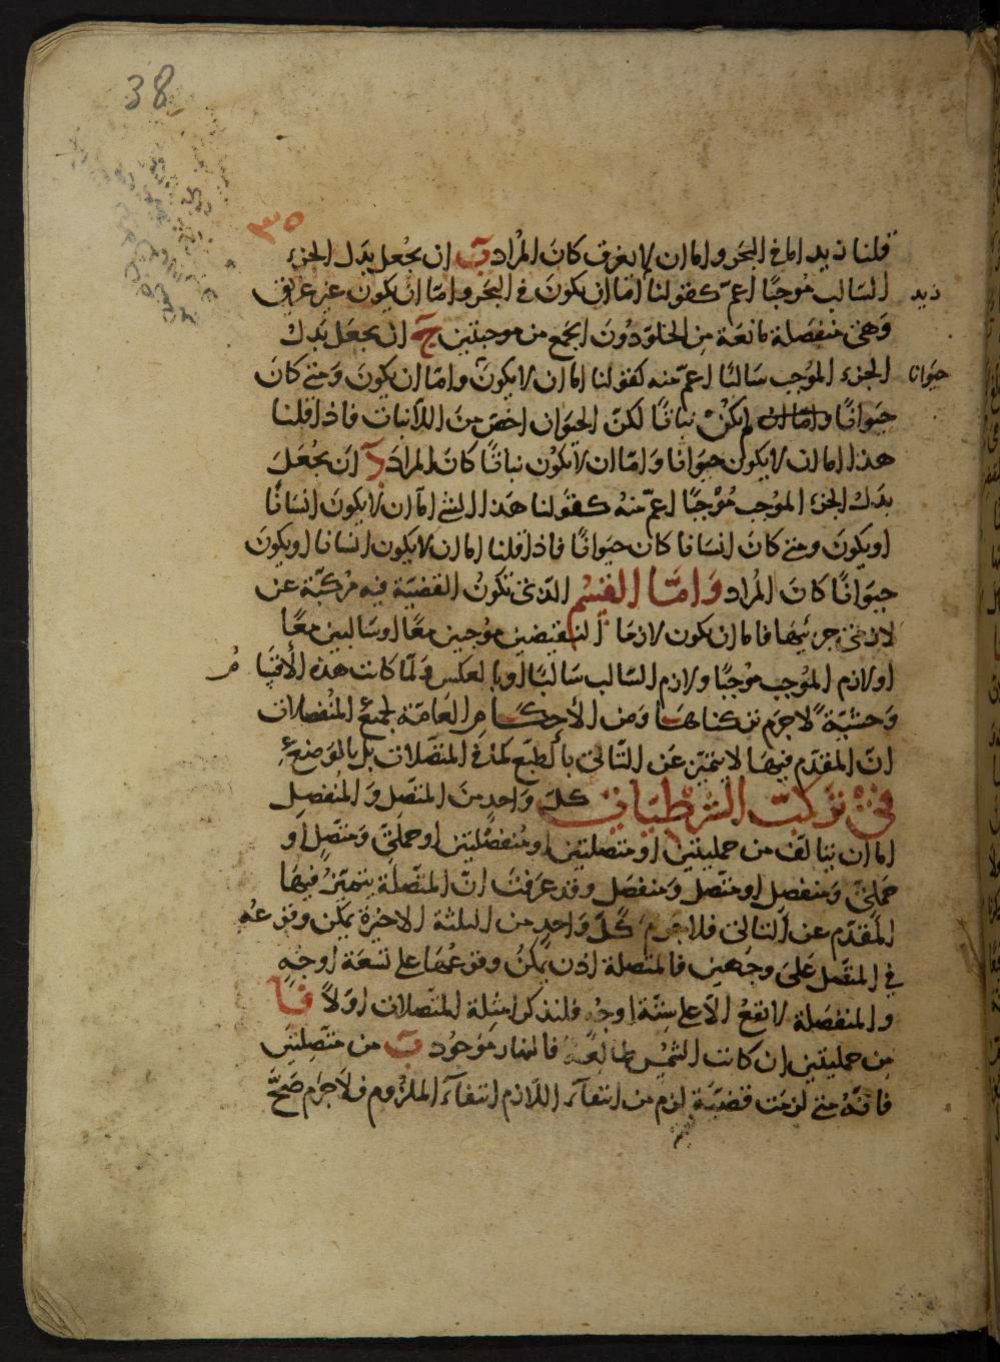 38
٣٥
قلنا زيد اما في البحر واما ان لا يغرق كان المراد ب ان يجعل بدل الجزء
السالب موجبًا اعمّ كقولنا اما ان يكون في البحر وامّا ان يكون غير غريق
زيد
وهى منفصلة مانعة من الخلو دون الجمع من موجبتين ج ان يجعل بدل
الجزء الموجب سالبًا اعمّ منه كقولنا اما ان لا يكون وامّا ان يكون ومتى كان
حيوانا
حيوانًا وامّا ان لم يكن نباتًا لكن الحيوان اخص من اللانبات فاذا قلنا
هذا اما ان لا يكون حيوانا وامّا ان لا يكون نباتًا كان المراد د ان يُجعَل
بدل الجزء الموجب موجبًا اعمّ منه كقولنا هذا الشئ امّا ان لا يكون انسانًا
او يكون ومتى كان انسانا كان حيوانًا فاذا قلنا اما ان لا يكون انسانا او يكون
حيوانًا كان المراد وامّا القسم الذى تكون القضيّة فيه مركبّة عن
لازمَى جزئيها فاما ان يكون لازما النقيضين موجبين معًا او سالبين معًا
او لازم الموجب موجبًا ولازم السالب سالبًا او بالعكس ولمّا كانت هذه الاقسام
وحشيّة لاجرم تركناها ومن الاحكام العامّة لجميع المنفصلات
انّ المقدّم فيها لا يتميّز عن التالى بالطبع كما فى المتصلات بل بالوضع
فى تركيب الشرطيات كلّ واحد من المتصل والمنفصل
اما ان يتالف من حمليتين او متصلتين او منفصلتين او حملىّ ومتصل او
حملىّ ومنفصل او متصل ومنفصل وقد عرفت انّ المتصلة يتميّز فيها
المقدّم عن التالى فلا جرم كلّ واحد من الثلثة الاخيرة يمكن وقوعه
في المتصل على وجهين فالمتصلة اذن يمكن وقوعها على تسعة اوجه
والمنفصلة لا تقع الّا على ستّة اوجه فلنذكر امثلة المتصلات اوّلاً فا
من حمليتين ان كانت الشمس طالعة فالنهار موجود ب من متصلتين
فانّه متى لزمت قضيّة لزم من انتفاء اللازم انتفاء الملزوم فلا جرم صحّ